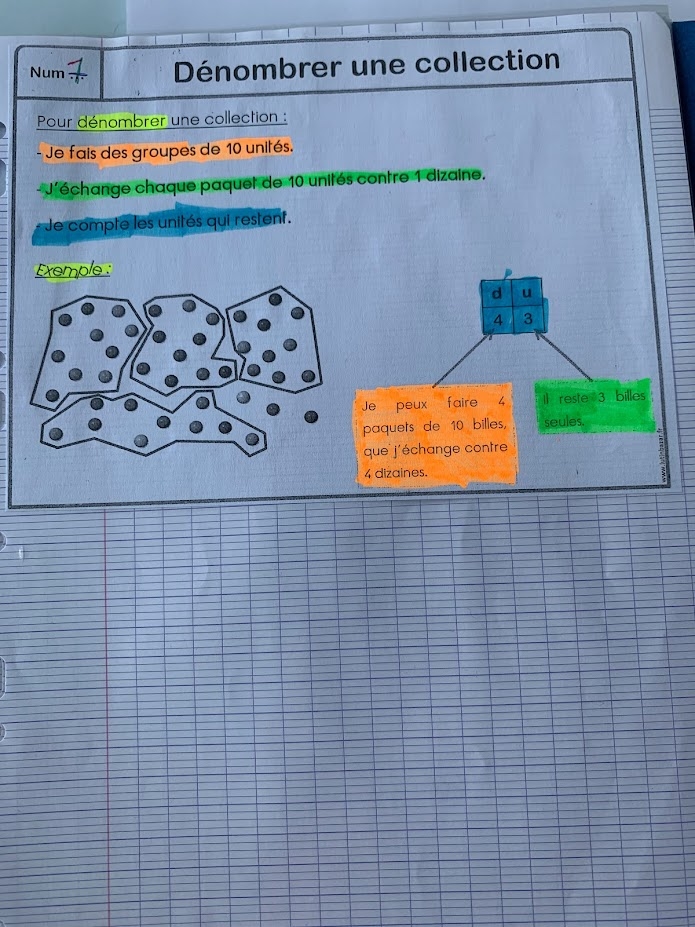 Num 1
Dénombrer une collection
Pour dénombrer une collection :
- Je fais des groupes de 10 unités.
- J'échange chaque paquet de 10 unités contre 1 dizaine.
- Je compte les unités qui restent.
Exemple :
d u
4 3
Je peux faire 4
paquets de 10 billes,
que j'échange contre
4 dizaines.
Il reste 3 billes
seules.
www.lutinbazar.fr